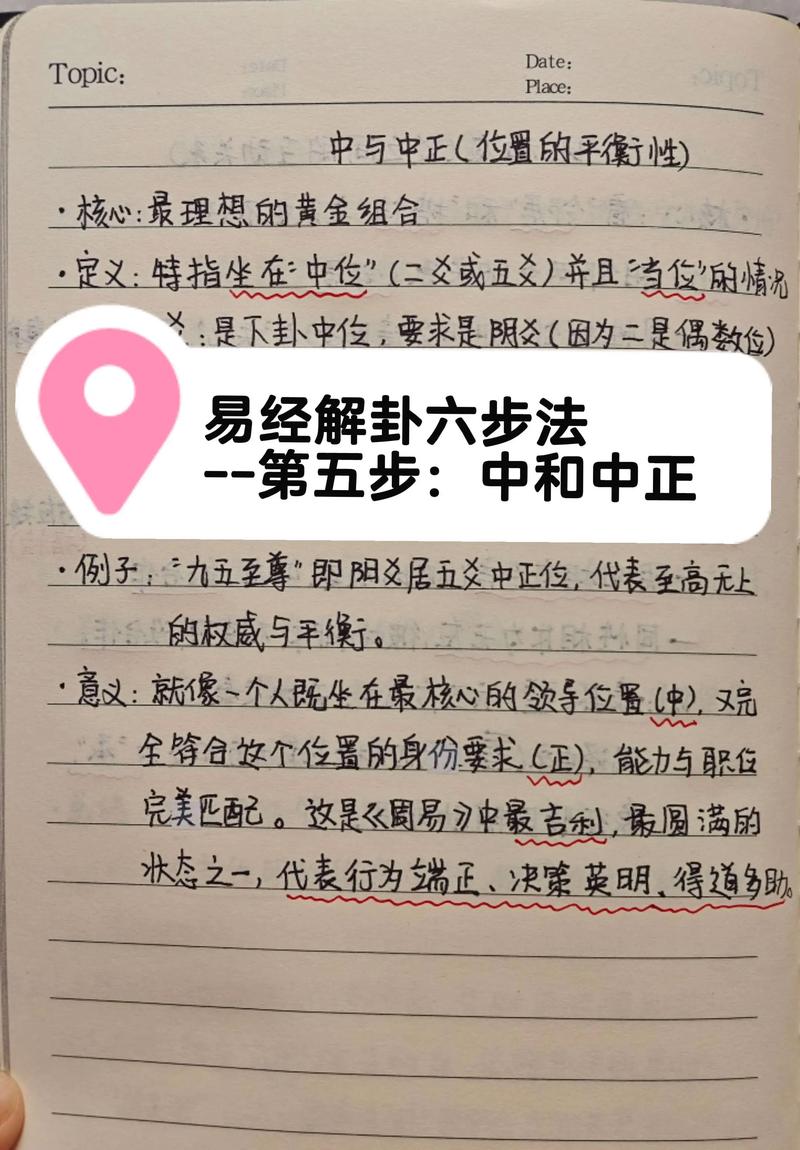 Topic:
Date:
Place:
中与中正(位置的平衡性)
·核心:最理想的黄金组合
·定义:特指坐在“中位”(二爻或五爻)并且“当位”的情况
爻:是下卦中位,要求是阴爻(因为二是偶数位)
易经解卦六步法
--第五步:中和中正
·例子:“九五至尊”即阴爻居五爻中正位,代表至高无上
的权威与平衡。
·意义:就像一个人既坐在最核心的领导位置(中),又完
全符合这个位置的身份要求(正),能力与职位
完美匹配。这是《周易》中最吉利,最圆满的
状态之一,代表行为端正、决策英明、得道多助。